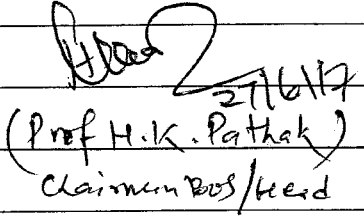 27/6/17
(Prof H.K. Pathak)
Chairman BOS/Head